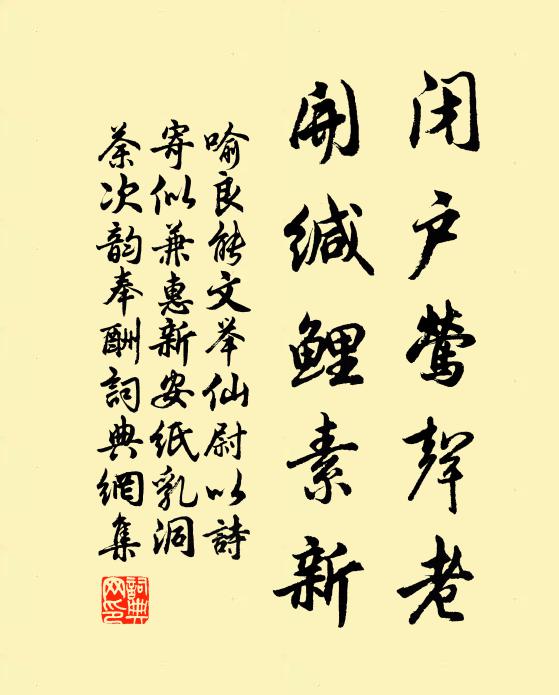 闭户莺聲老
開缄鲤素新
喻良能文举仙尉以詩
寄似兼惠新安纸乳洞
茶次韵奉酬詞典網集
詞典網印